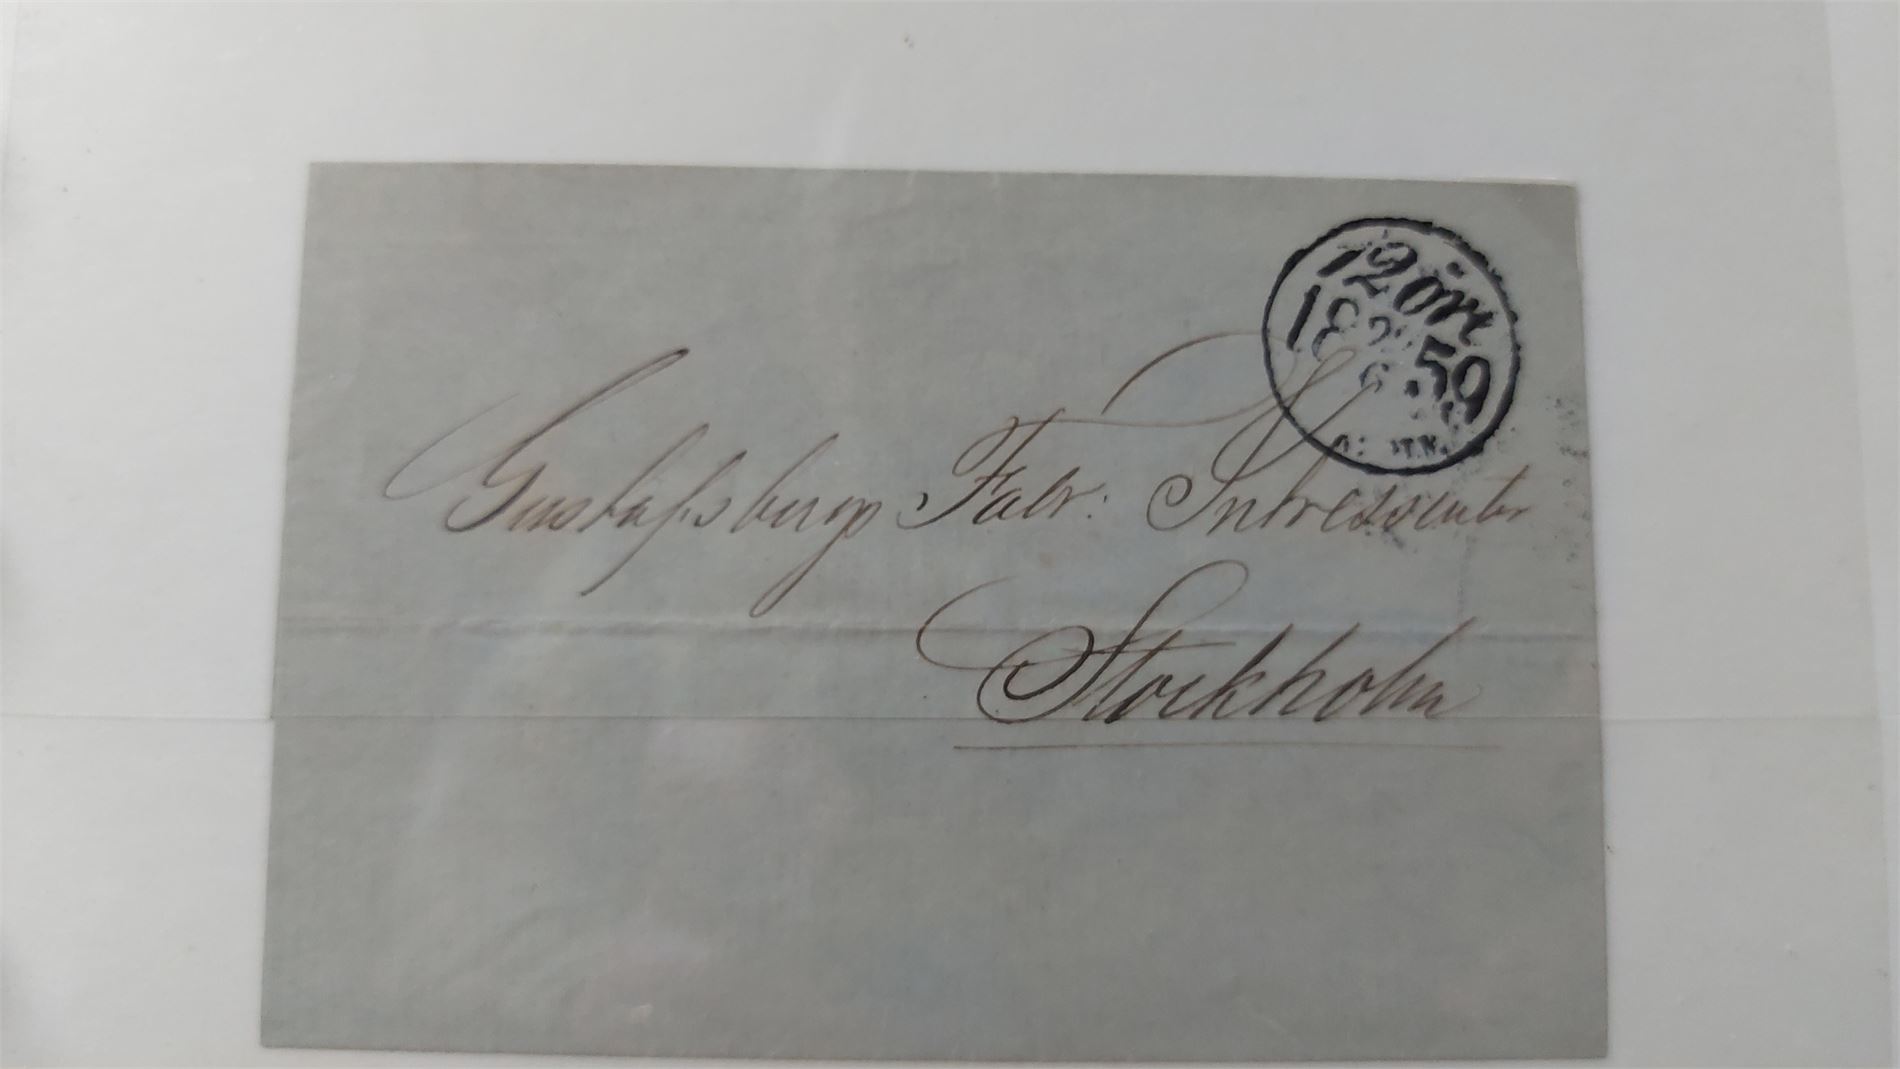 12 öre
18 59
6
Gustafsbergs Fabr: Intressenter
Stockholm